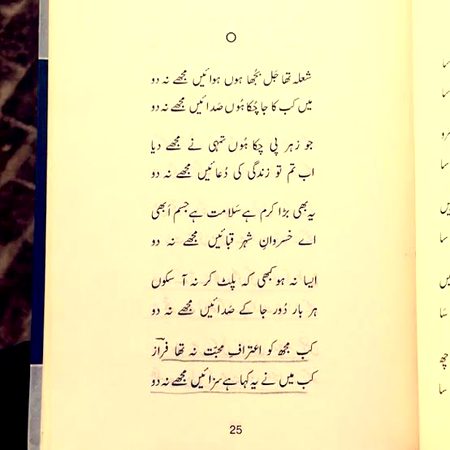 شعلہ تھا جَل بُجھا ہوں ہوائیں مجھے نہ دو
میں کب کا جا چُکا ہُوں صَدائیں مجھے نہ دو
جو زہر پی چکا ہُوں تمہی نے مجھے دیا
اب تم تو زندگی کی دُعائیں مجھے نہ دو
یہ بھی بڑا کرم ہے سَلامت ہے جسم اَبھی
اے خسروانِ شہر قبائیں مجھے نہ دو
ایسا نہ ہو کبھی کہ پلٹ کر نہ آ سکوں
ہر بار دُور جا کے صَدائیں مجھے نہ دو
کب مجھ کو اعترافِ محبّت نہ تھا فرازؔ
کب میں نے یہ کہا ہے سزائیں مجھے نہ دو
25